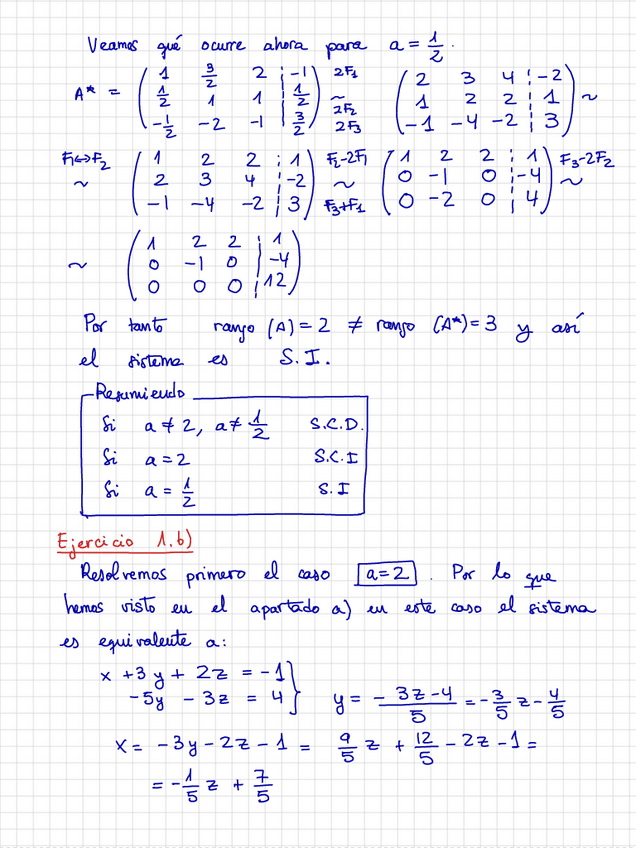 Veamos qué ocurre ahora para a = 1/2.
A* = ( 1 3/2 2 ¦ -1 ) 2F1 ( 2 3 4 ¦ -2 )
( 1/2 1 1 ¦ 1/2 ) ~ 2F2 ( 1 2 2 ¦ 1 ) ~
( -1/2 -2 -1 ¦ 3/2 ) 2F3 ( -1 -4 -2 ¦ 3 )
F1↔F2 ( 1 2 2 ¦ 1 ) F2-2F1 ( 1 2 2 ¦ 1 ) F3-2F2
~ ( 2 3 4 ¦ -2 ) ~ ( 0 -1 0 ¦ -4 ) ~
( -1 -4 -2 ¦ 3 ) F3+F1 ( 0 -2 0 ¦ 4 )
( 1 2 2 ¦ 1 )
~ ( 0 -1 0 ¦ -4 )
( 0 0 0 ¦ 12 )
Por tanto rango (A) = 2 ≠ rango (A*) = 3 y así
el sistema es S.I.
Resumiendo
Si a ≠ 2, a ≠ 1/2 S.C.D.
Si a = 2 S.C.I
Si a = 1/2 S.I
Ejercicio 1.b)
Resolvemos primero el caso a=2. Por lo que
hemos visto en el apartado a) en este caso el sistema
es equivalente a:
x + 3y + 2z = -1 }
-5y - 3z = 4 } y = - 3z-4/5 = -3/5 z - 4/5
x = -3y - 2z - 1 = 9/5 z + 12/5 - 2z - 1 =
= -1/5 z + 7/5